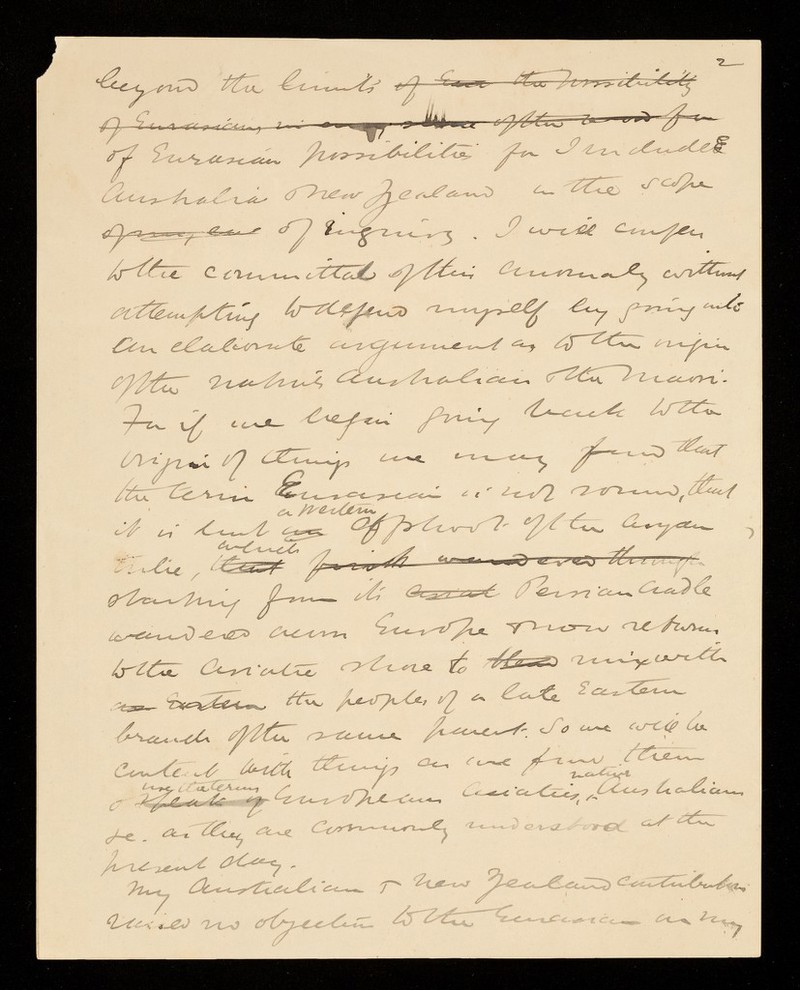 2
beyond the limits of Eur the possibility
of Eurasians in any sense of the word for
of Eurasian possibilities for I include
Australia & New Zealand in the scope
of my of inquiry. I will confess
to the committal of this anomaly without
attempting to defend myself by going into
an elaborate argument as to the origin
of the native Australian & the Maori.
For if we begin going back to the
origin of things we may find that
the term Eurasian is not sound, that
it is but an a western offshoot of the Aryan
tribe, that which first wandered through
starting from its Asiat Persian cradle
wandered across Europe & now returns
to the Asiatic shore to mix with
an Eastern the peoples of a late Eastern
branch of the same parent. So we will be
content with things as we find them
& speak of use the terms Europeans Asiatics, native Australians
&c. as they are commonly understood at the
present day.
My Australian & New Zealand contributors
raised no objection to the Eurasian in my